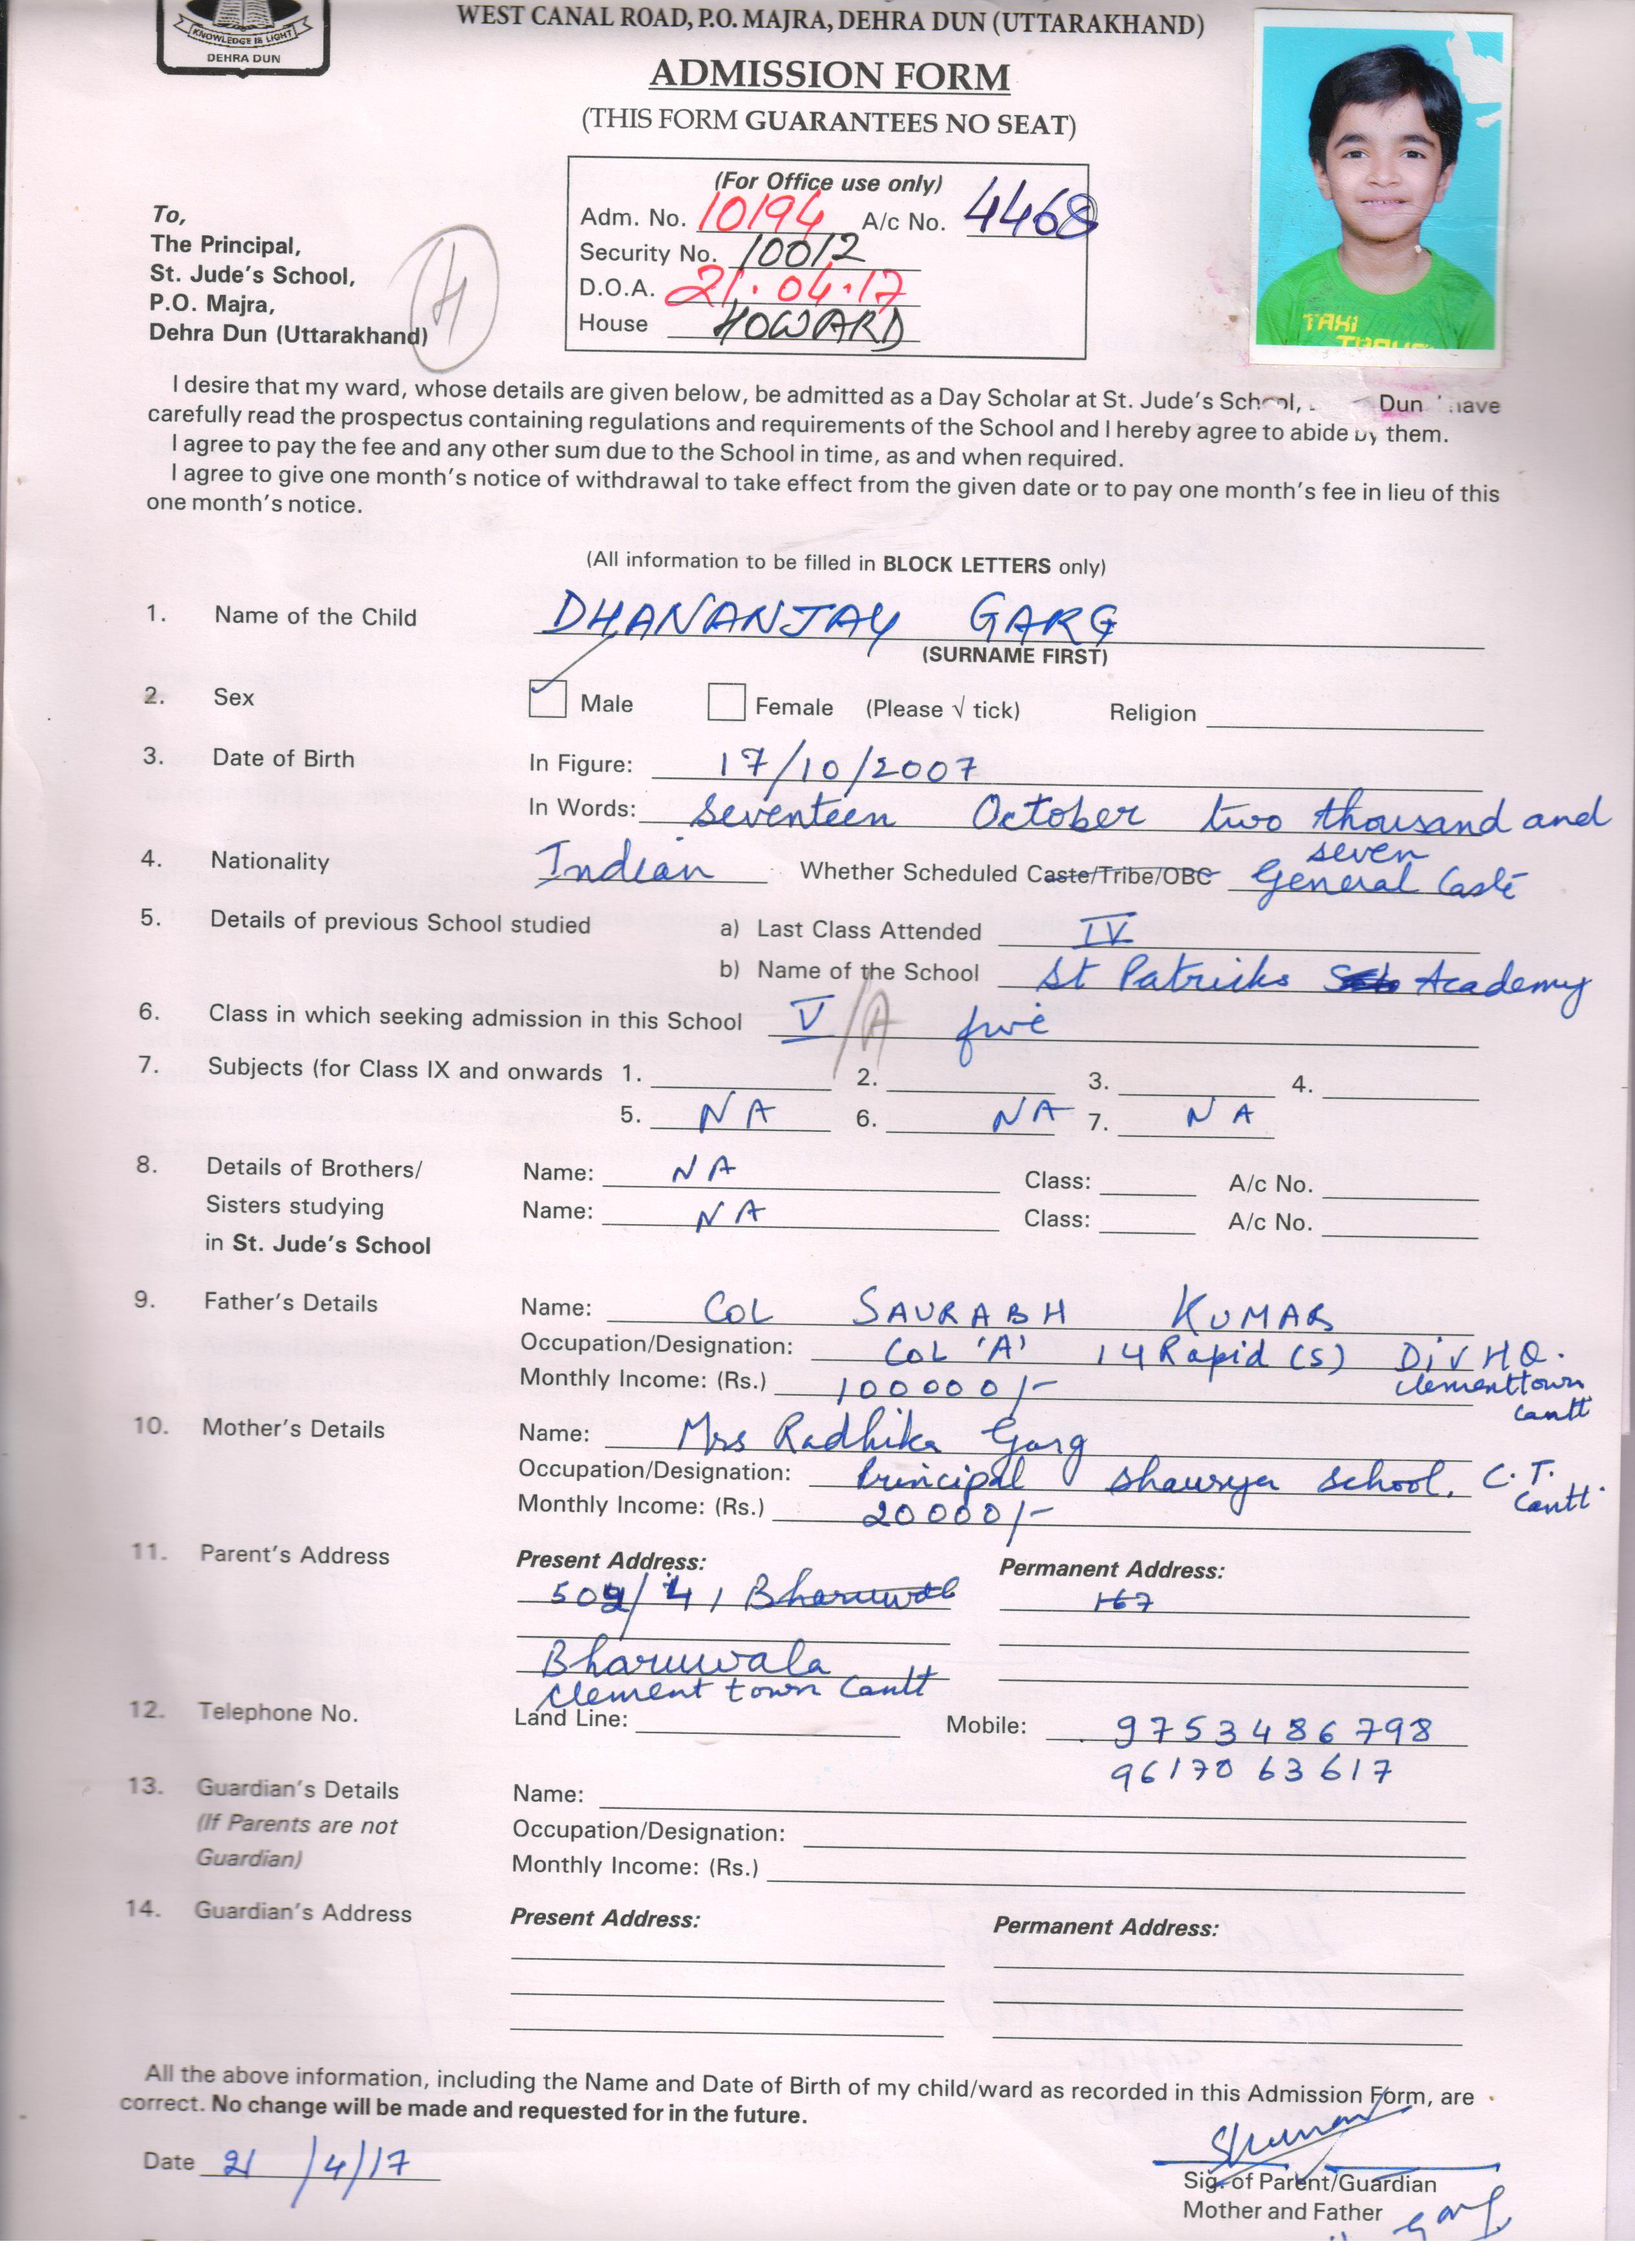 KNOWLEDGE IS LIGHT
DEHRA DUN
WEST CANAL ROAD, P.O. MAJRA, DEHRA DUN (UTTARAKHAND)
ADMISSION FORM
(THIS FORM GUARANTEES NO SEAT)
(For Office use only)
Adm. No. 10194 A/c No. 4468
Security No. 10012
D.O.A. 21.04.17
House HOWARD
To,
The Principal,
St. Jude's School,
P.O. Majra,
Dehra Dun (Uttarakhand)
H
TAXI
I desire that my ward, whose details are given below, be admitted as a Day Scholar at St. Jude's School, Dun have
carefully read the prospectus containing regulations and requirements of the School and I hereby agree to abide by them.
I agree to pay the fee and any other sum due to the School in time, as and when required.
I agree to give one month's notice of withdrawal to take effect from the given date or to pay one month's fee in lieu of this
one month's notice.
(All information to be filled in BLOCK LETTERS only)
1. Name of the Child DHANANJAY GARG
(SURNAME FIRST)
2. Sex Male Female (Please √ tick) Religion
3. Date of Birth In Figure: 17/10/2007
In Words: Seventeen October two thousand and
seven
4. Nationality Indian Whether Scheduled Caste/Tribe/OBC General Caste
5. Details of previous School studied a) Last Class Attended IV
b) Name of the School St Patricks Academy
6. Class in which seeking admission in this School V/A five
7. Subjects (for Class IX and onwards 1. 2. 3. 4.
5. NA 6. NA 7. NA
8. Details of Brothers/ Name: NA Class: A/c No.
Sisters studying Name: NA Class: A/c No.
in St. Jude's School
9. Father's Details Name: COL SAURABH KUMAR
Occupation/Designation: COL 'A' 14 Rapid (S) Div HQ.
Clementtown
Cantt
Monthly Income: (Rs.) 100000/-
10. Mother's Details Name: Mrs Radhika Garg
Occupation/Designation: Principal Shaurya School. C.T.
Cantt.
Monthly Income: (Rs.) 20000/-
11. Parent's Address Present Address: Permanent Address:
509/41 Bharuwal 167
Bharuwala
Clement town Cantt
12. Telephone No. Land Line: Mobile: 9753486798
9617063617
13. Guardian's Details Name:
(If Parents are not Occupation/Designation:
Guardian) Monthly Income: (Rs.)
14. Guardian's Address Present Address: Permanent Address:
All the above information, including the Name and Date of Birth of my child/ward as recorded in this Admission Form, are
correct. No change will be made and requested for in the future.
Date 21/4/17
Sig. of Parent/Guardian
Mother and Father
Garg